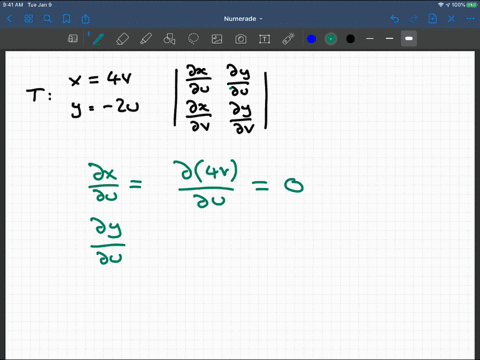 9:41 AM Tue Jan 9
100%
Numerade
T: x = 4v
y = -2u
| ∂x/∂u ∂y/∂u |
| ∂x/∂v ∂y/∂v |
∂x/∂u = ∂(4v)/∂u = 0
∂y/∂u